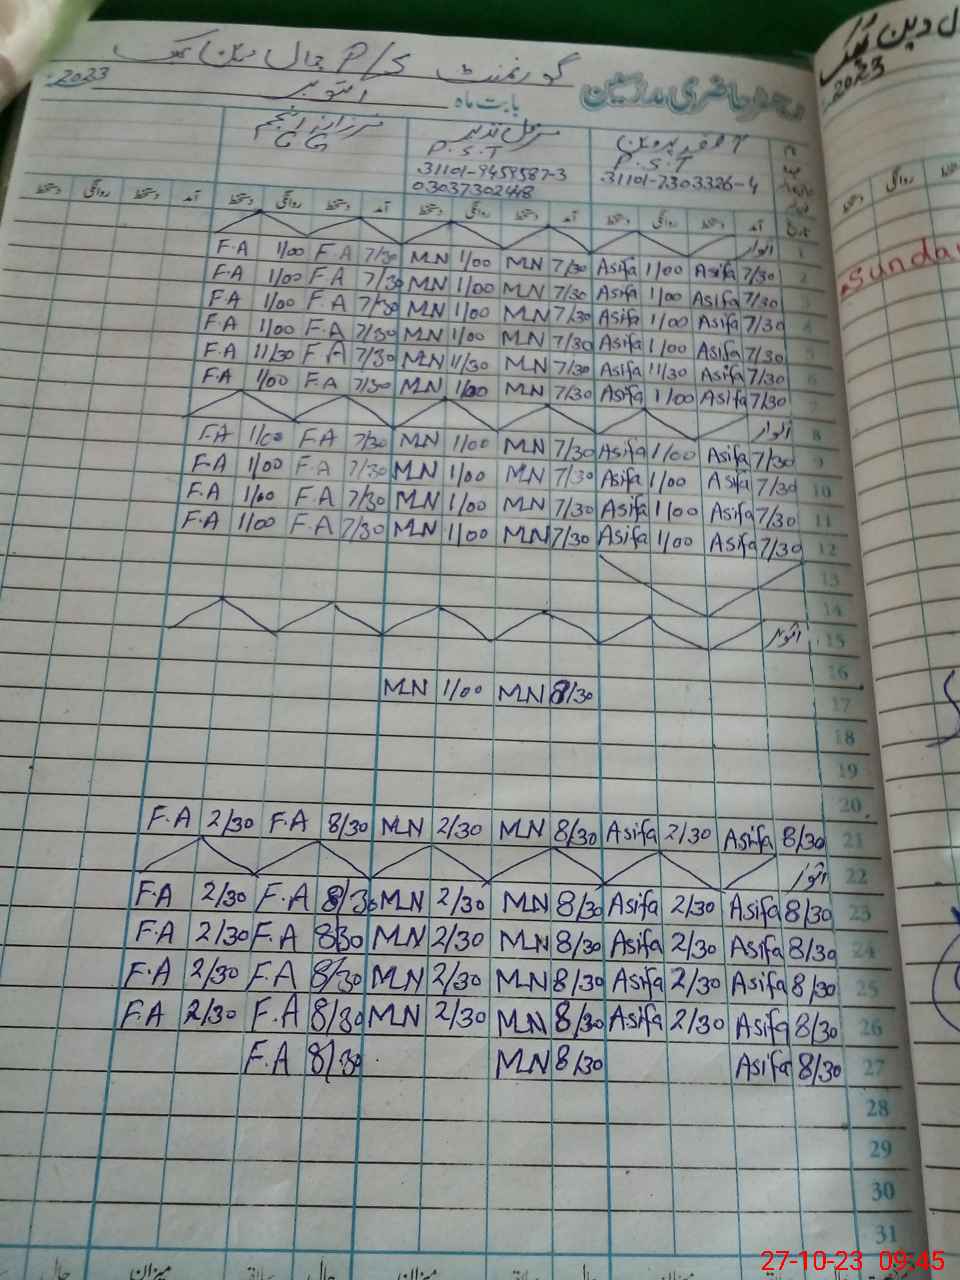 گورنمنٹ P/S چال دین
رجسٹر حاضری مدرسین بابت ماہ اکتوبر 2023
آصفہ پروین
P.S.T
31101-7303326-4
P.S.T
31101-9459587-3
03037302448
فرزانہ انجم
آمد دستخط روانگی دستخط آمد دستخط روانگی دستخط آمد دستخط روانگی دستخط آمد دستخط روانگی دستخط
اتوار 1
F.A 1/00 F.A 7/30 M.N 1/00 M.N 7/30 Asifa 1/00 Asifa 7/30 2
F.A 1/00 F.A 7/30 M.N 1/00 M.N 7/30 Asifa 1/00 Asifa 7/30 3
F.A 1/00 F.A 7/30 M.N 1/00 M.N 7/30 Asifa 1/00 Asifa 7/30 4
F.A 1/00 F.A 7/30 M.N 1/00 M.N 7/30 Asifa 1/00 Asifa 7/30 5
F.A 11/30 F.A 7/30 M.N 11/30 M.N 7/30 Asifa 11/30 Asifa 7/30 6
F.A 1/00 F.A 7/30 M.N 1/00 M.N 7/30 Asifa 1/00 Asifa 7/30 7
اتوار 8
F.A 1/00 F.A 7/30 M.N 1/00 M.N 7/30 Asifa 1/00 Asifa 7/30 9
F.A 1/00 F.A 7/30 M.N 1/00 M.N 7/30 Asifa 1/00 Asifa 7/30 10
F.A 1/00 F.A 7/30 M.N 1/00 M.N 7/30 Asifa 1/00 Asifa 7/30 11
F.A 1/00 F.A 7/30 M.N 1/00 M.N 7/30 Asifa 1/00 Asifa 7/30 12
13
14
اتوار 15
16
M.N 1/00 M.N 8/30 17
18
19
20
F.A 2/30 F.A 8/30 M.N 2/30 M.N 8/30 Asifa 2/30 Asifa 8/30 21
اتوار 22
F.A 2/30 F.A 8/30 M.N 2/30 M.N 8/30 Asifa 2/30 Asifa 8/30 23
F.A 2/30 F.A 8/30 M.N 2/30 M.N 8/30 Asifa 2/30 Asifa 8/30 24
F.A 2/30 F.A 8/30 M.N 2/30 M.N 8/30 Asifa 2/30 Asifa 8/30 25
F.A 2/30 F.A 8/30 M.N 2/30 M.N 8/30 Asifa 2/30 Asifa 8/30 26
F.A 8/30 M.N 8/30 Asifa 8/30 27
28
29
30
31
میزان حال سابقہ میزان حال سابقہ میزان حال
2023
روانگی
دستخط
Sunda
27-10-23 09:45